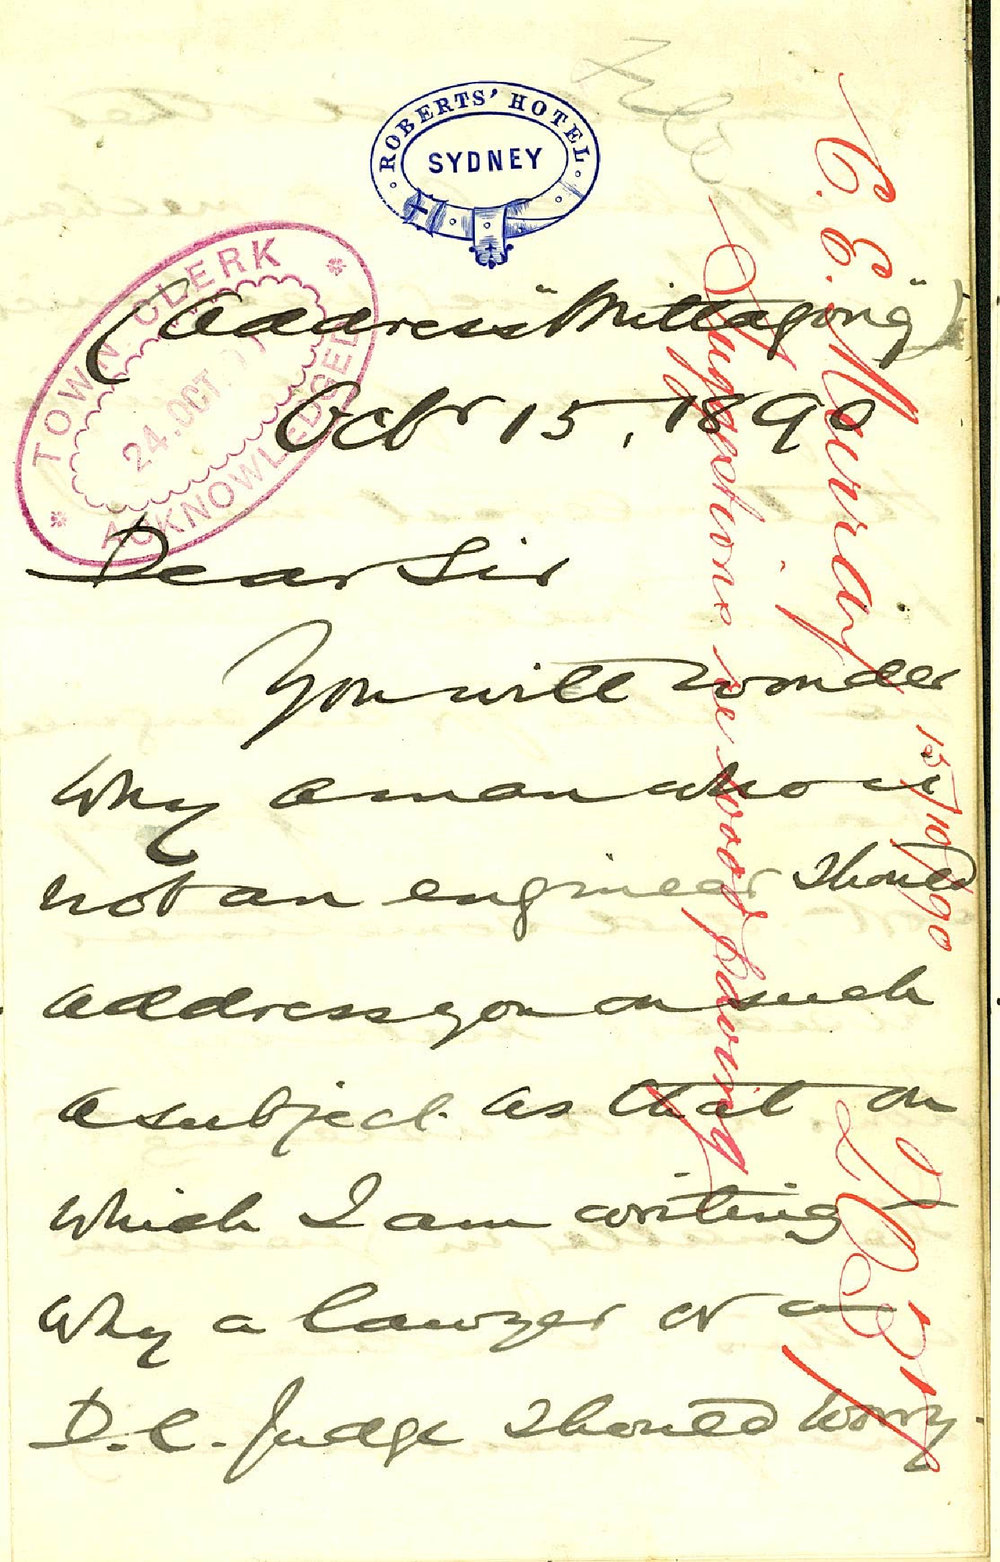 ROBERTS' HOTEL
SYDNEY
TOWN CLERK
24. OCT.
ACKNOWLEDGED
(Address "Mittagong")
Octr 15, 1890
Dear Sir
You will wonder
why a man who is
not an engineer should
address you on such
a subject as that on
which I am writing —
why a lawyer or a
D.C. Judge should worry
C. E. Murray
15/10/90
Suggestions re wood paving